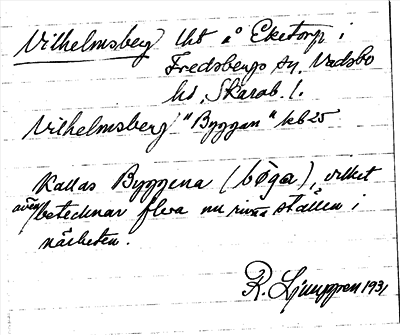 Vilhelmsberg lht å Eketorp i
Fredsbergs sn. Vadsbo
hd, Skarab. l.
Vilhelmsberg "Byggan" kb 25
Kallas Byggena (bøga), vilket
även betecknar flera nu rivna ställen i
närheten.
R. Ljunggren 1931